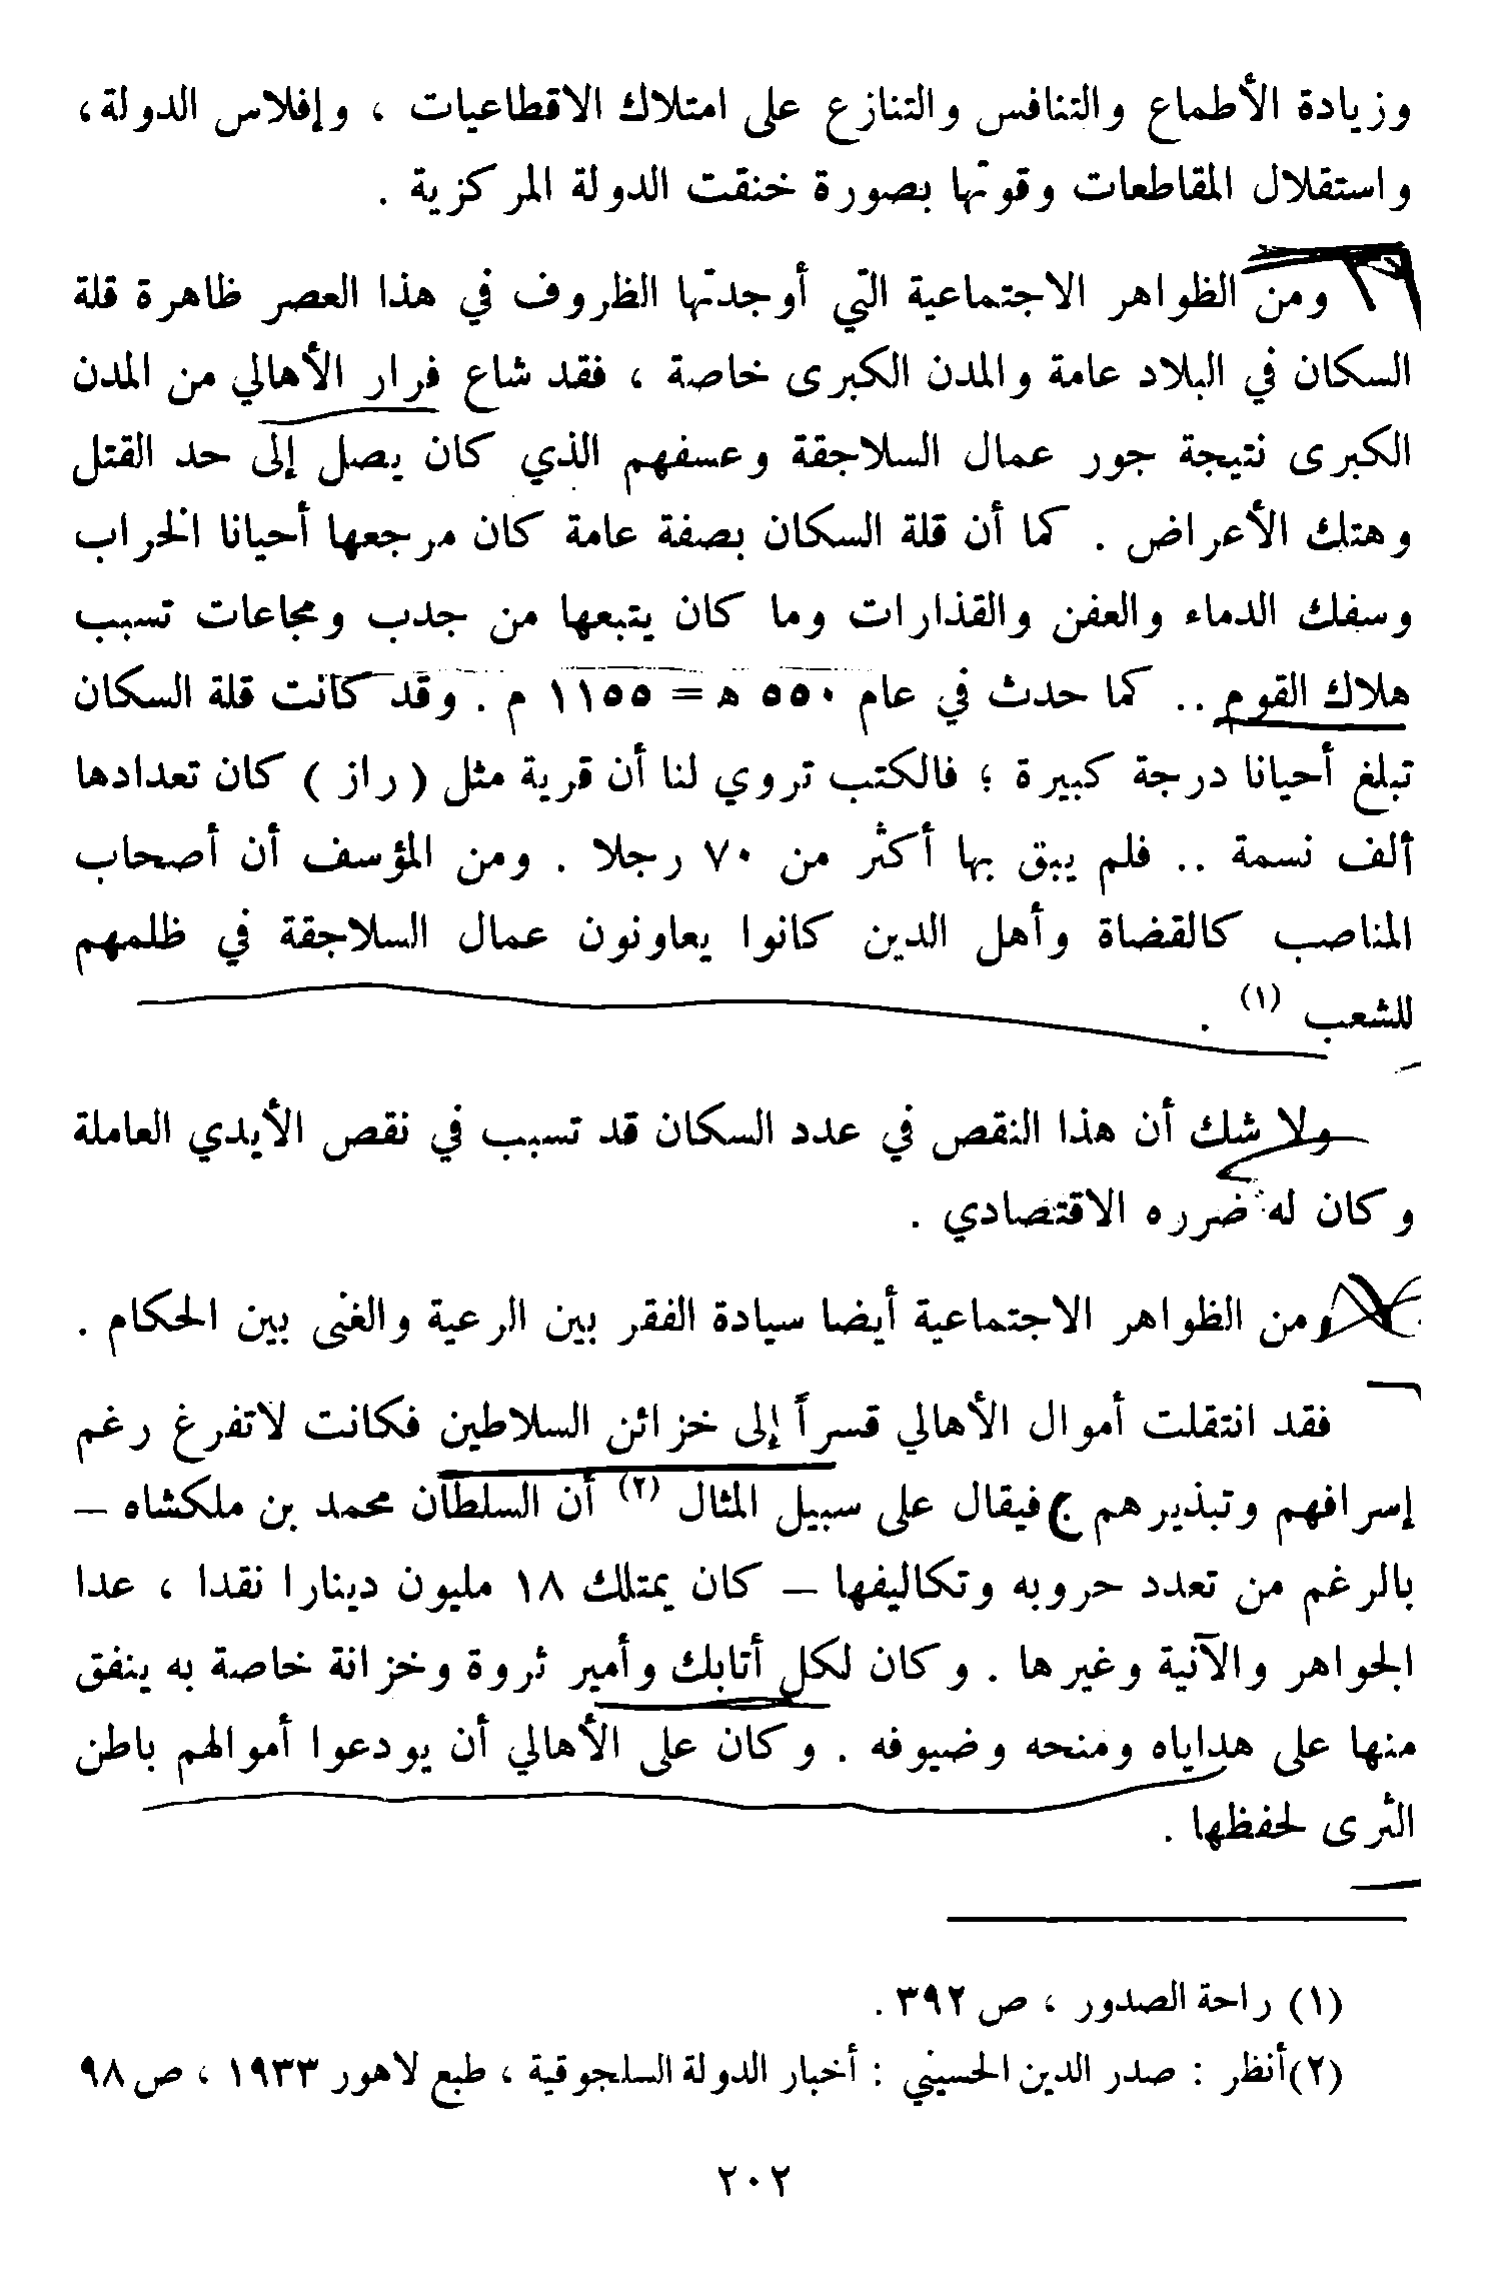 وزيادة الأطماع والتنافس والتنازع على امتلاك الاقطاعيات ، وإفلاس الدولة،
واستقلال المقاطعات وقوتها بصورة خنقت الدولة المركزية .
ومن الظواهر الاجتماعية التي أوجدتها الظروف في هذا العصر ظاهرة قلة
السكان في البلاد عامة والمدن الكبرى خاصة ، فقد شاع فرار الأهالي من المدن
الكبرى نتيجة جور عمال السلاجقة وعسفهم الذي كان يصل إلى حد القتل
وهتك الأعراض . كما أن قلة السكان بصفة عامة كان مرجعها أحيانا الخراب
وسفك الدماء والعفن والقذارات وما كان يتبعها من جدب ومجاعات تسبب
هلاك القوم .. كما حدث في عام ٥٥٠ ه = ١١٥٥ م . وقد كانت قلة السكان
تبلغ أحيانا درجة كبيرة ؛ فالكتب تروي لنا أن قرية مثل ( راز ) كان تعدادها
ألف نسمة .. فلم يبق بها أكثر من ٧٠ رجلا . ومن المؤسف أن أصحاب
المناصب كالقضاة وأهل الدين كانوا يعاونون عمال السلاجقة في ظلمهم
للشعب (١) .
ولا شك أن هذا النقص في عدد السكان قد تسبب في نقص الأيدي العاملة
وكان له ضرره الاقتصادي .
ومن الظواهر الاجتماعية أيضا سيادة الفقر بين الرعية والغنى بين الحكام .
فقد انتقلت أموال الأهالي قسراً إلى خزائن السلاطين فكانت لاتفرغ رغم
إسرافهم وتبذيرهم فيقال على سبيل المثال (٢) أن السلطان محمد بن ملكشاه –
بالرغم من تعدد حروبه وتكاليفها – كان يمتلك ١٨ مليون دينارا نقدا ، عدا
الجواهر والآنية وغيرها . وكان لكل أتابك وأمير ثروة وخزانة خاصة به ينفق
منها على هداياه ومنحه وضيوفه . وكان على الأهالي أن يودعوا أموالهم باطن
الثرى لحفظها .
(١) راحة الصدور ، ص ٣٩٢ .
(٢)أنظر : صدر الدين الحسيني : أخبار الدولة السلجوقية ، طبع لاهور ١٩٣٣ ، ص ٩٨
٢٠٢